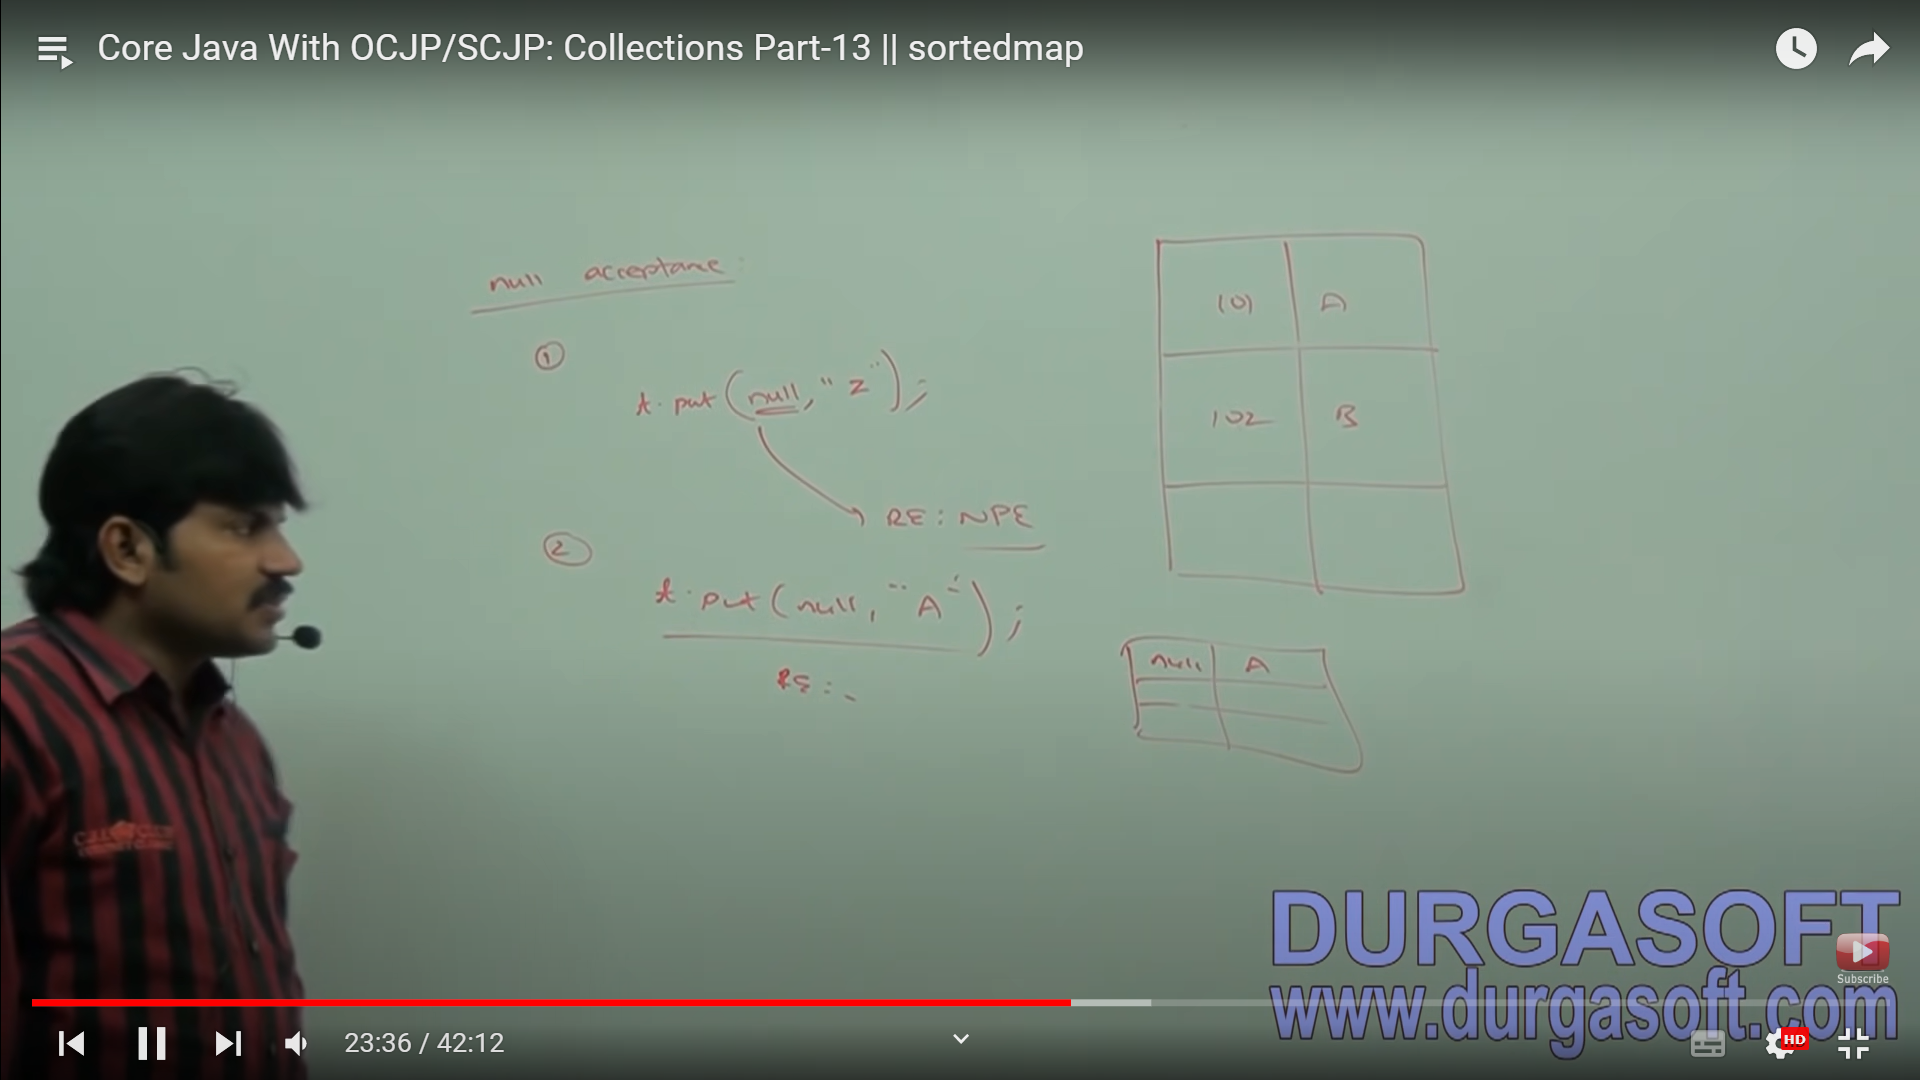 Core Java With OCJP/SCJP: Collections Part-13 || sortedmap
null acceptance:
①
t.put(null, "Z");
RE: NPE
②
t.put(null, "A");
RE:
101 A
102 B
null A
DURGASOFT
www.durgasoft.com
Subscribe
23:36 / 42:12
HD